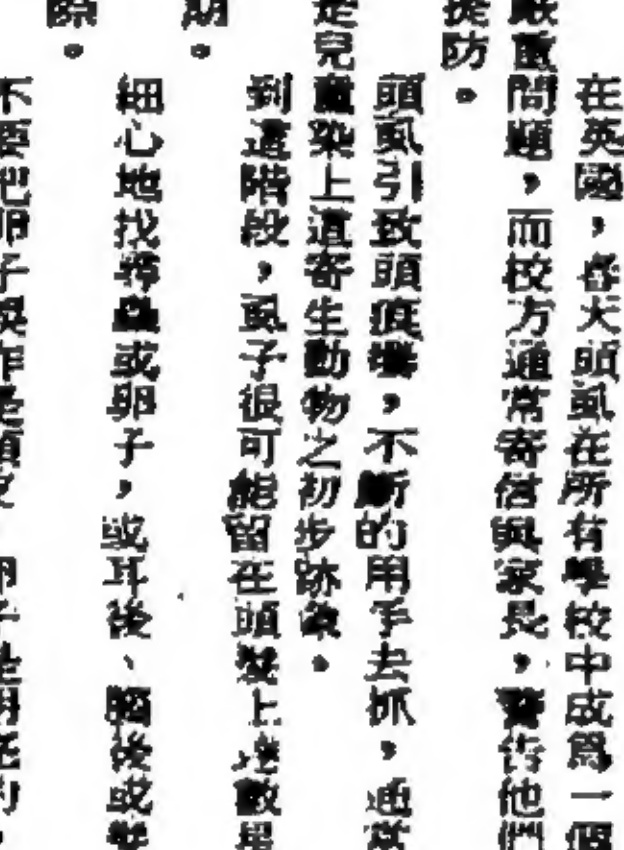 在英國，各大頭虱在所有學校中成爲一個
嚴重問題，而校方通常寄信與家長，警告他們
提防。
頭虱引致頭痕癢，不斷的用手去抓，通常
是兒童染上這寄生動物之初步跡象。
到這階段，虱子很可能留在頭髮上達數星
期。
細心地找尋蟲或卵子，或耳後、腦後或
除。
不要把卵子誤作是頭皮
卵子是明亮的，